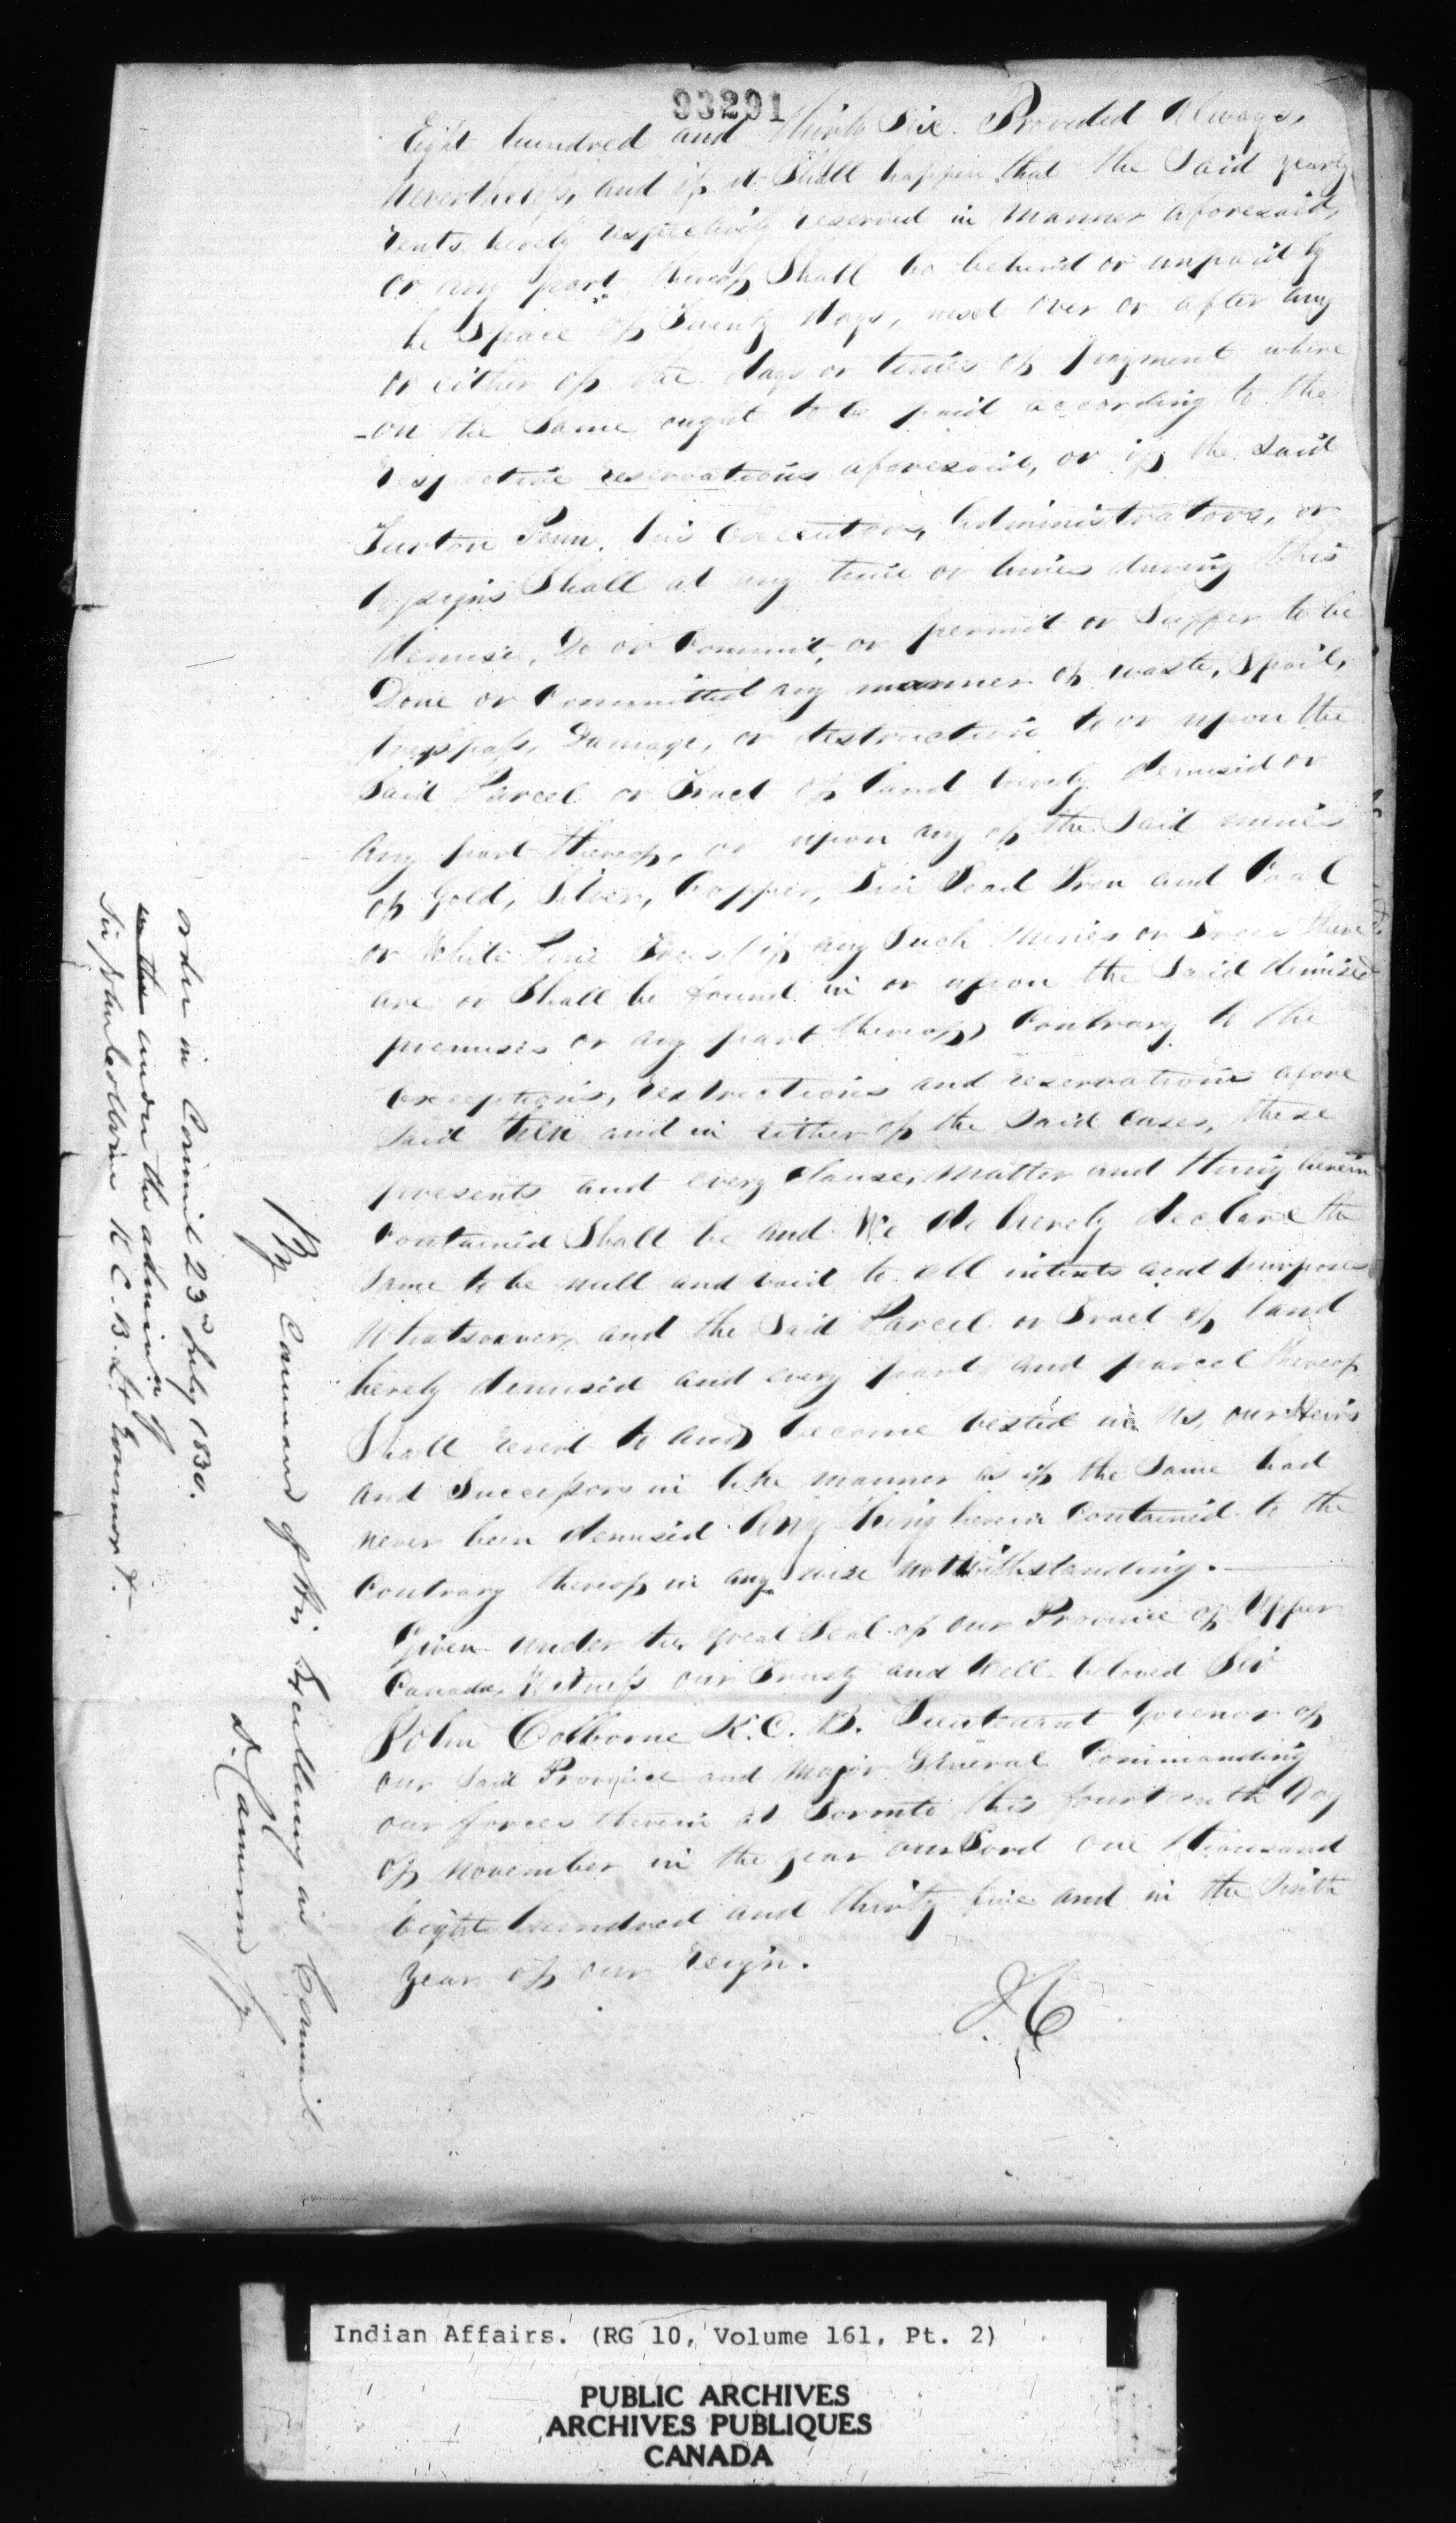 93291
Eight hundred and thirty Six. Provided Always,
Nevertheless, and if it Shall happen that the Said yearly
rents hereby respectively reserved in manner aforesaid,
or any part thereof Shall be behind or unpaid by
he Space of Twenty days, next over or after any
or either of the days or times of payment where
-on the Same ought to be paid according to the
respective reservations aforesaid, or if the said
Turton Penn, his Executors, Administrators, or
Assigns Shall at any time or times during this
demise, Do or Commit, or permit or Suffer to be
Done or Committed any manner of waste, Spoil,
trespass, Damage, or destruction to or upon the
Said Parcel or Tract of land hereby demised or
Any part thereof, or upon any of the Said mines
of Gold, Silver, Copper, Tin Lead Iron and Coal
or White Pine Trees (if any Such mines or Trees there
are or Shall be found in or upon the Said demised
premises or any part thereof) Contrary to the
Exceptions, restrictions and reservations afore
said then and in either of the said cases, these
presents and every clause, matter and thing herein
Contained Shall be and We do hereby declare the
Same to be null and void to all intents and purposes
Whatsoever, and the Said Parcel or Tract of land
hereby demised and every part and parcel thereof
Shall revert to and become vested in us, our Heirs
and Successors in like manner as if the Same had
never been demised Any thing herein Contained to the
Contrary thereof in any wise notwithstanding.
Given under the great Seal of our Province of Upper
Canada, Witness our Trusty and Well beloved Sir
John Colborne K.C.B. Lieutenant Govenor of
our said Province and Major General Commanding
our forces therein at Toronto this fourteenth day
of November in the year our Lord One thousand
Eight hundred and thirty five and in the Sixth
year of our reign.
JC
By Command of His Excellency in Council
D. Cameron
order in Council 23d July 1830.
in the under the adming of
Sir John Colborne K.C.B. Lt Governor &-
Indian Affairs. (RG 10, Volume 161, Pt. 2)
PUBLIC ARCHIVES
ARCHIVES PUBLIQUES
CANADA